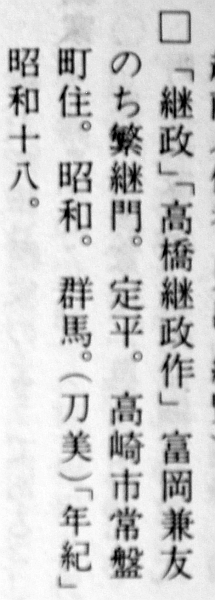 □「継政」「高橋継政作」富岡兼友
のち繁継門。定平。高崎市常盤
町住。昭和。群馬。(刀美)「年紀」
昭和十八。